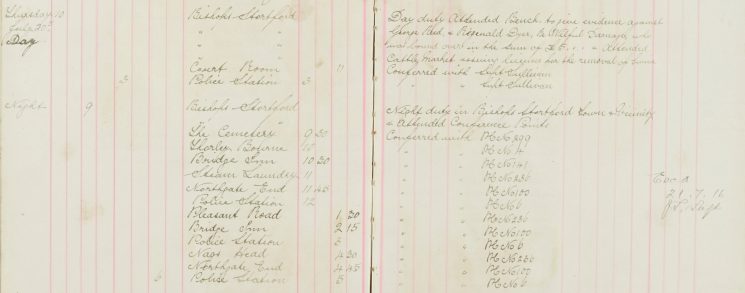 Thursday 10 Bishops Stortford Day duty Attended Bench to give evidence against
July 20th " George Reed & Reginald Dyer, re Wilful Damage, who
Day " was bound over in the sum of £5 . . . Attended
" Castle Market issuing licences for the removal of Swine
Court Room 11 Conferred with Supt Sullivan
3 Police Station 3 " " Supt Sullivan
Night 9 Bishops Stortford Night duty in Bishops Stortford Town & Vicinity
" & Attended Conference Points
The Cemetery 9 30 Conferred with PC No 299
Thorley Bourne 10 " " PC No 4
Bridge Inn 10 30 " " PC No 141
Steam Laundry 11 " " PC No 236
Northgate End 11 45 " " PC No 100
Police Station 12 " " PC No 6
Pleasant Road 1 30 " " PC No 236
Bridge Inn 2 15 " " PC No 100
Police Station 3 " " PC No 6
Nags Head 4 30 " " PC No 236
Northgate End 4 45 " " PC No 100
6 Police Station 5 " " PC No 6
21.7.16
Supt